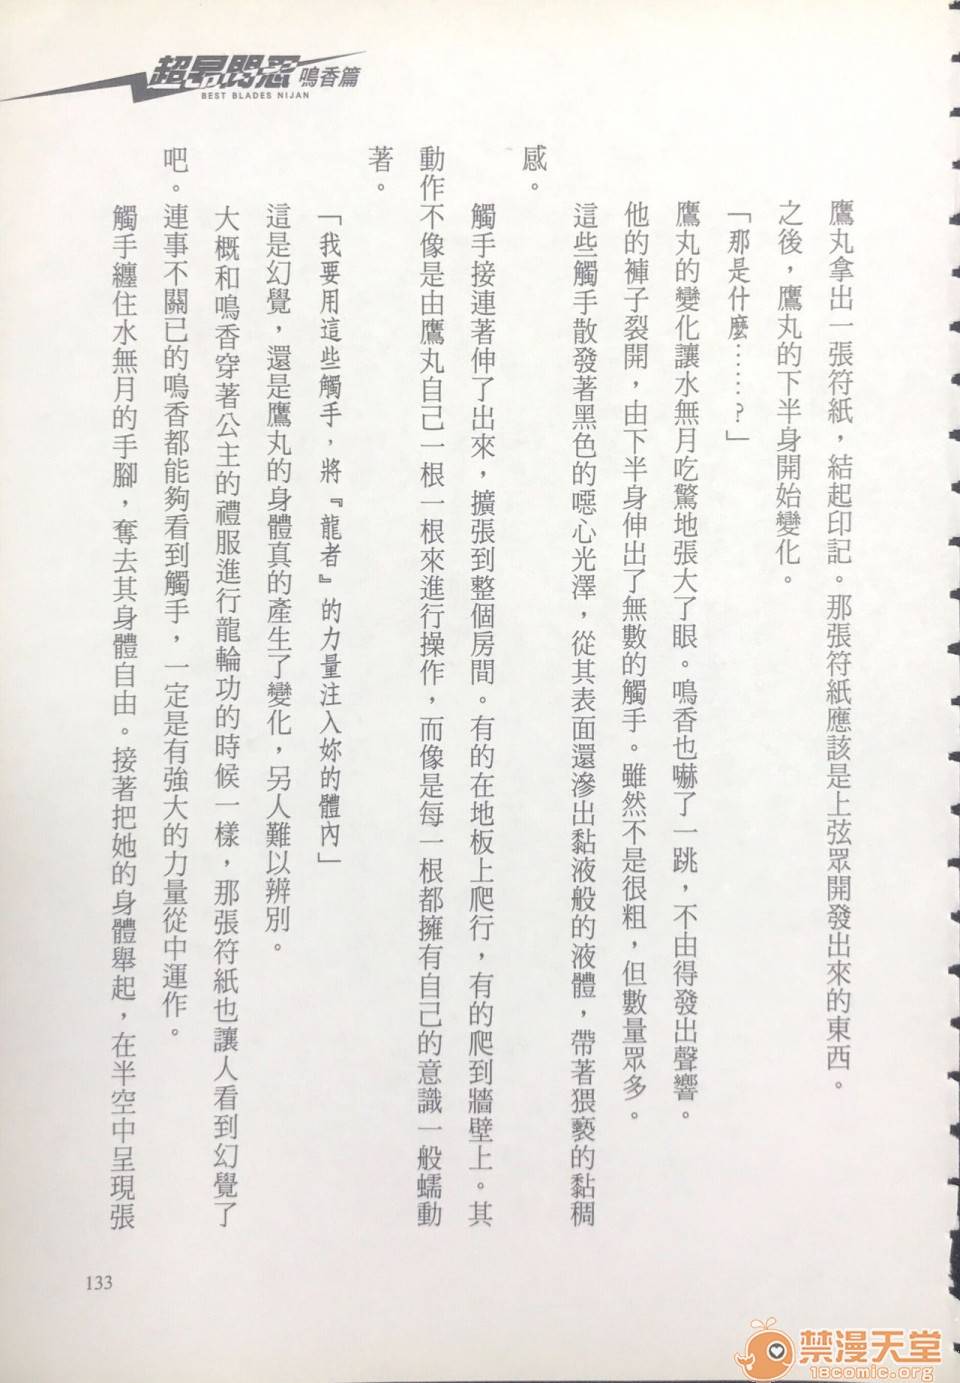 超昂閃忍 鳴香篇
BEST BLADES NIJAN
鷹丸拿出一張符紙，結起印記。那張符紙應該是上弦眾開發出來的東西。
之後，鷹丸的下半身開始變化。
「那是什麼……？」
鷹丸的變化讓水無月吃驚地張大了眼。鳴香也嚇了一跳，不由得發出聲響。
他的褲子裂開，由下半身伸出了無數的觸手。雖然不是很粗，但數量眾多。
這些觸手散發著黑色的噁心光澤，從其表面還滲出黏液般的液體，帶著猥褻的黏稠
感。
觸手接連著伸了出來，擴張到整個房間。有的在地板上爬行，有的爬到牆壁上。其
動作不像是由鷹丸自己一根一根來進行操作，而像是每一根都擁有自己的意識一般蠕動
著。
「我要用這些觸手，將『龍者』的力量注入妳的體內」
這是幻覺，還是鷹丸的身體真的產生了變化，另人難以辨別。
大概和鳴香穿著公主的禮服進行龍輪功的時候一樣，那張符紙也讓人看到幻覺了
吧。連事不關已的鳴香都能夠看到觸手，一定是有強大的力量從中運作。
觸手纏住水無月的手腳，奪去其身體自由。接著把她的身體舉起，在半空中呈現張
133
禁漫天堂
18comic.org